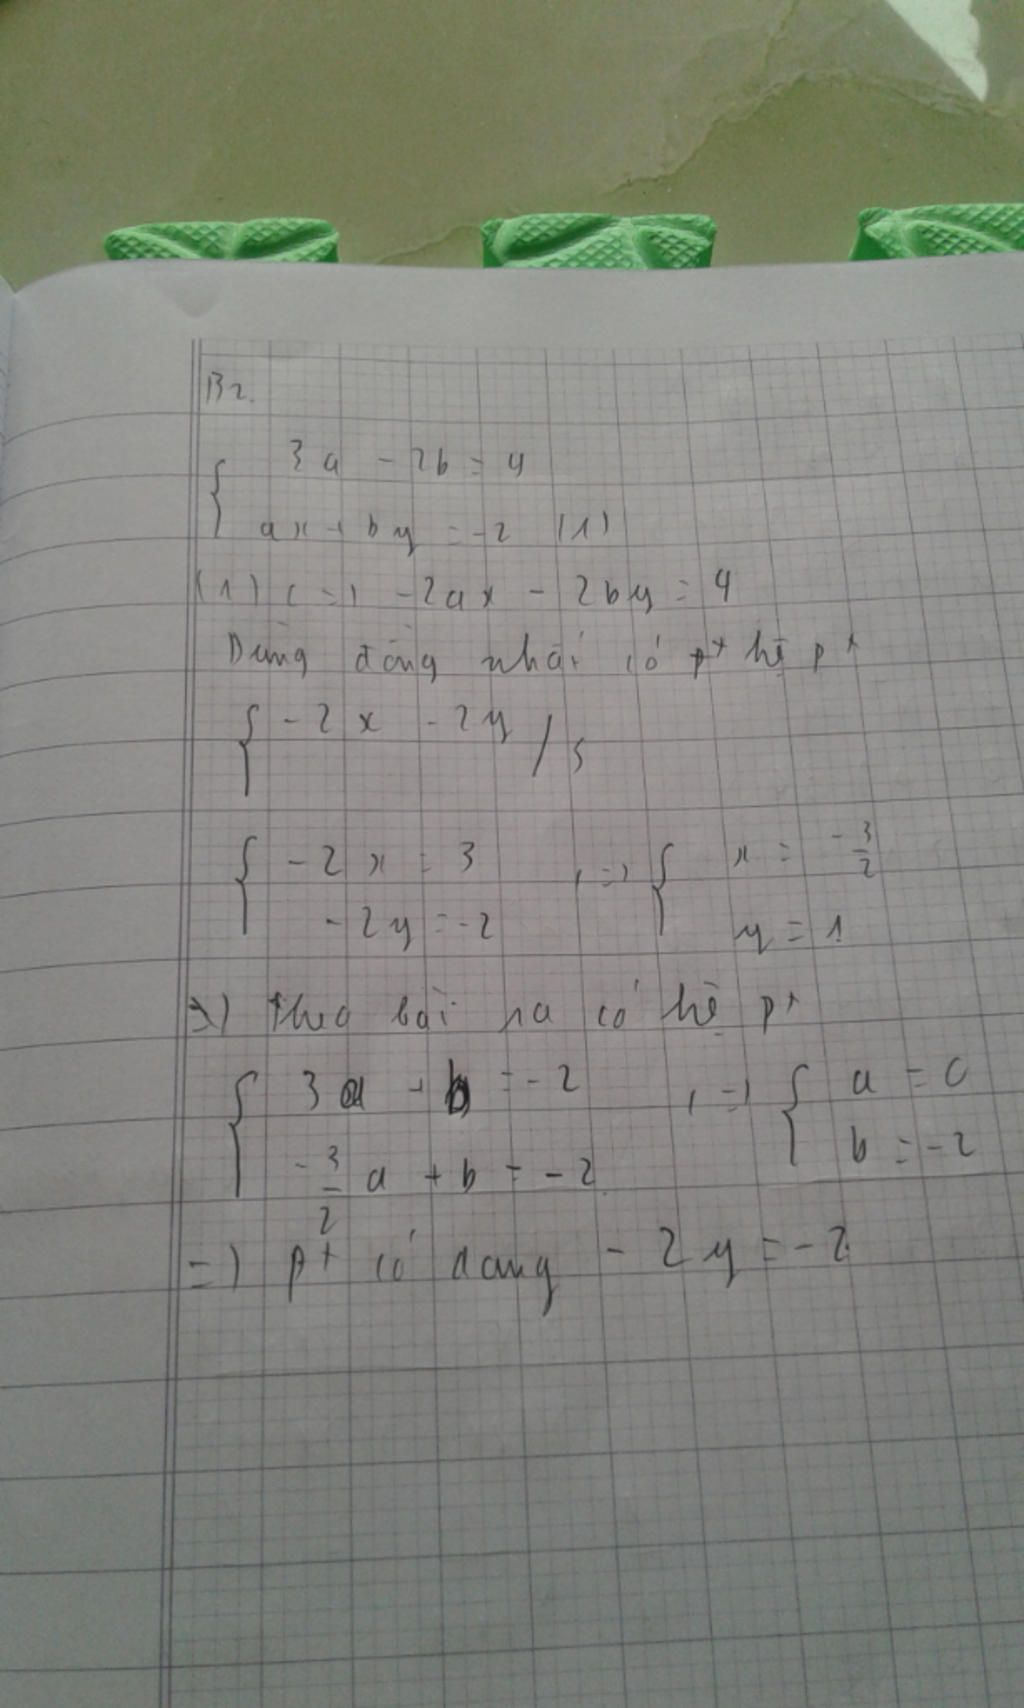 B2.
{ 3a - 2b = 4
ax + by = -2 (1)
(1) <=> -2ax - 2by = 4
Dùng đồng nhất có pt hệ pt
{ -2x - 2y / S
{ -2x = 3 <=> { x = -3/2
-2y = -2 y = 1
=> theo bài ra có hệ pt
{ 3a + b = -2 <=> { a = 0
-3/2 a + b = -2 b = -2
=> pt có dạng -2y = -2